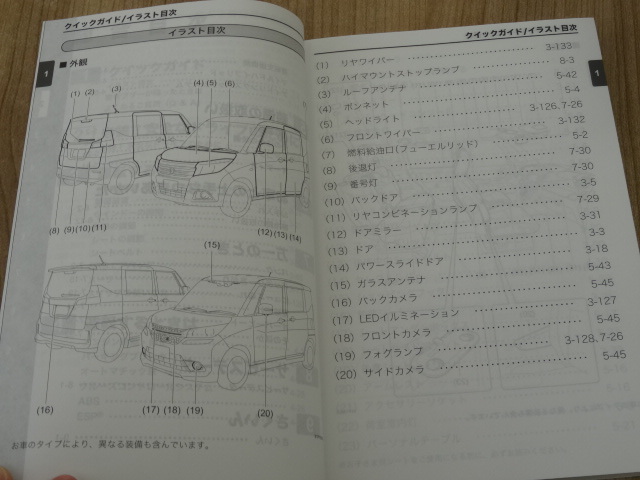 クイックガイド/イラスト目次
イラスト目次
■ 外観
1
(1) (2) (3) (4) (5) (6)
(8) (9)(10) (11) (12) (13) (14)
(15)
(16) (17) (18) (19) (20)
お車のタイプにより、異なる装備も含んでいます。
クイックガイド/イラスト目次
1
(1) リヤワイパー 3-133
(2) ハイマウントストップランプ 8-3
(3) ルーフアンテナ 5-42
(4) ボンネット 5-4
(5) ヘッドライト 3-126, 7-26
(6) フロントワイパー 3-132
(7) 燃料給油口(フューエルリッド) 5-2
(8) 後退灯 7-30
(9) 番号灯 7-30
(10) バックドア 3-5
(11) リヤコンビネーションランプ 7-29
(12) ドアミラー 3-31
(13) ドア 3-3
(14) パワースライドドア 3-18
(15) ガラスアンテナ 5-43
(16) バックカメラ 5-45
(17) LEDイルミネーション 3-127
(18) フロントカメラ 5-45
(19) フォグランプ 3-128, 7-26
(20) サイドカメラ 5-45